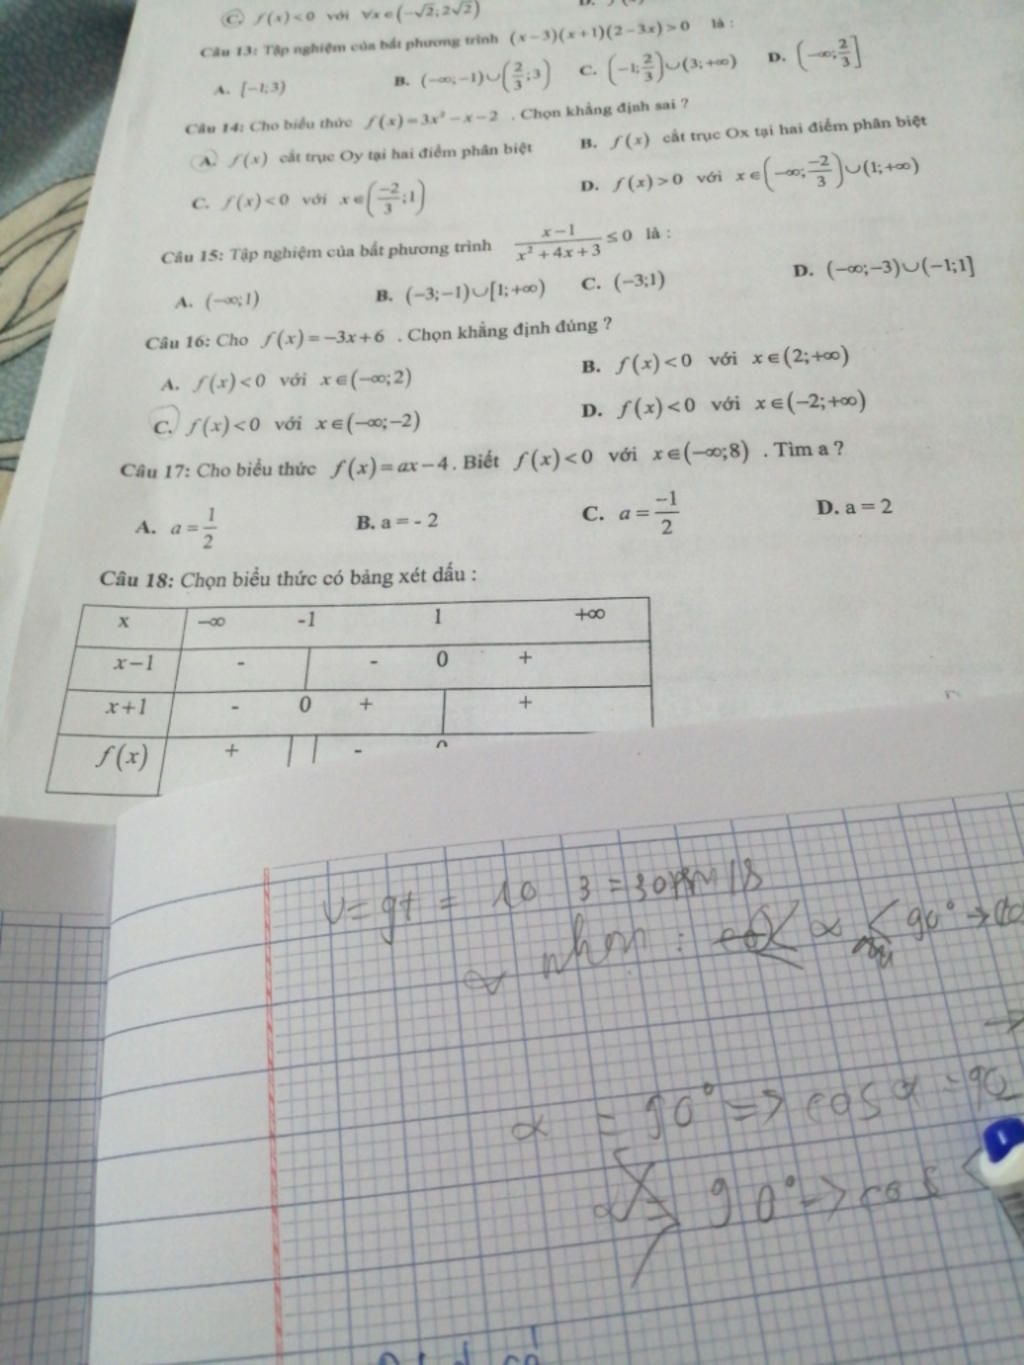 C. f(x)<0 với ∀x∈(−√2;2√2)
Câu 13: Tập nghiệm của bất phương trình (x−3)(x+1)(2−3x)>0 là :
A. [−1;3)
B. (−∞;−1)∪(2/3;3)
C. (−1;2/3)∪(3;+∞)
D. (−∞;2/3]
Câu 14: Cho biểu thức f(x)=3x²−x−2 . Chọn khẳng định sai ?
A. f(x) cắt trục Oy tại hai điểm phân biệt
B. f(x) cắt trục Ox tại hai điểm phân biệt
C. f(x)<0 với x∈(−2/3;1)
D. f(x)>0 với x∈(−∞;−2/3)∪(1;+∞)
Câu 15: Tập nghiệm của bất phương trình (x−1)/(x²+4x+3) ≤0 là :
A. (−∞;1)
B. (−3;−1)∪[1;+∞)
C. (−3;1)
D. (−∞;−3)∪(−1;1]
Câu 16: Cho f(x)=−3x+6 . Chọn khẳng định đúng ?
A. f(x)<0 với x∈(−∞;2)
B. f(x)<0 với x∈(2;+∞)
C. f(x)<0 với x∈(−∞;−2)
D. f(x)<0 với x∈(−2;+∞)
Câu 17: Cho biểu thức f(x)=ax−4. Biết f(x)<0 với x∈(−∞;8) . Tìm a ?
A. a=1/2
B. a = - 2
C. a=−1/2
D. a = 2
Câu 18: Chọn biểu thức có bảng xét dấu :
x −∞ -1 1 +∞
x−1 - | - 0 +
x+1 - 0 + | +
f(x) + || - 0
V= gt = 10 3 = 30 m/s
α nhọn : α < 90° →
α = 90° => cos α = 90
α > 90° -> cos <